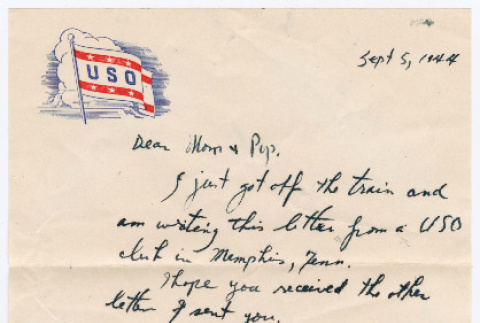 USO
Sept 5, 1944
Dear Mom & Pop,
I just got off the train and
am writeing this letter from a USO
club in Memphis, Tenn.
I hope you received the other
letter I sent you.